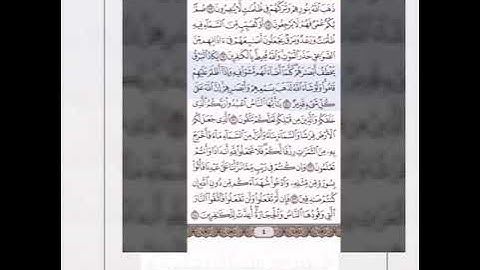 ذهب الله بنورهم وتركهم في ظلمت لا يبصرون صم
بكم عمي فهم لا يرجعون أو كصيب من السماء فيه
ظلمت ورعد وبرق يجعلون أصبعهم في ءاذانهم من
الصوعق حذر الموت والله محيط بالكفرين يكاد البرق
يخطف أبصرهم كلما أضاء لهم مشوا فيه وإذا أظلم عليهم
قاموا ولو شاء الله لذهب بسمعهم وأبصرهم إن الله على
كل شيء قدير يأيها الناس اعبدوا ربكم الذي
خلقكم والذين من قبلكم لعلكم تتقون الذي جعل لكم
الأرض فرشا والسماء بناء وأنزل من السماء ماء فأخرج
به من الثمرت رزقا لكم فلا تجعلوا لله أندادا وأنتم
تعلمون وإن كنتم في ريب مما نزلنا على عبدنا فأتوا
بسورة من مثله وادعوا شهداءكم من دون الله إن
كنتم صدقين فإن لم تفعلوا ولن تفعلوا فاتقوا النار
التي وقودها الناس والحجارة أعدت للكفرين